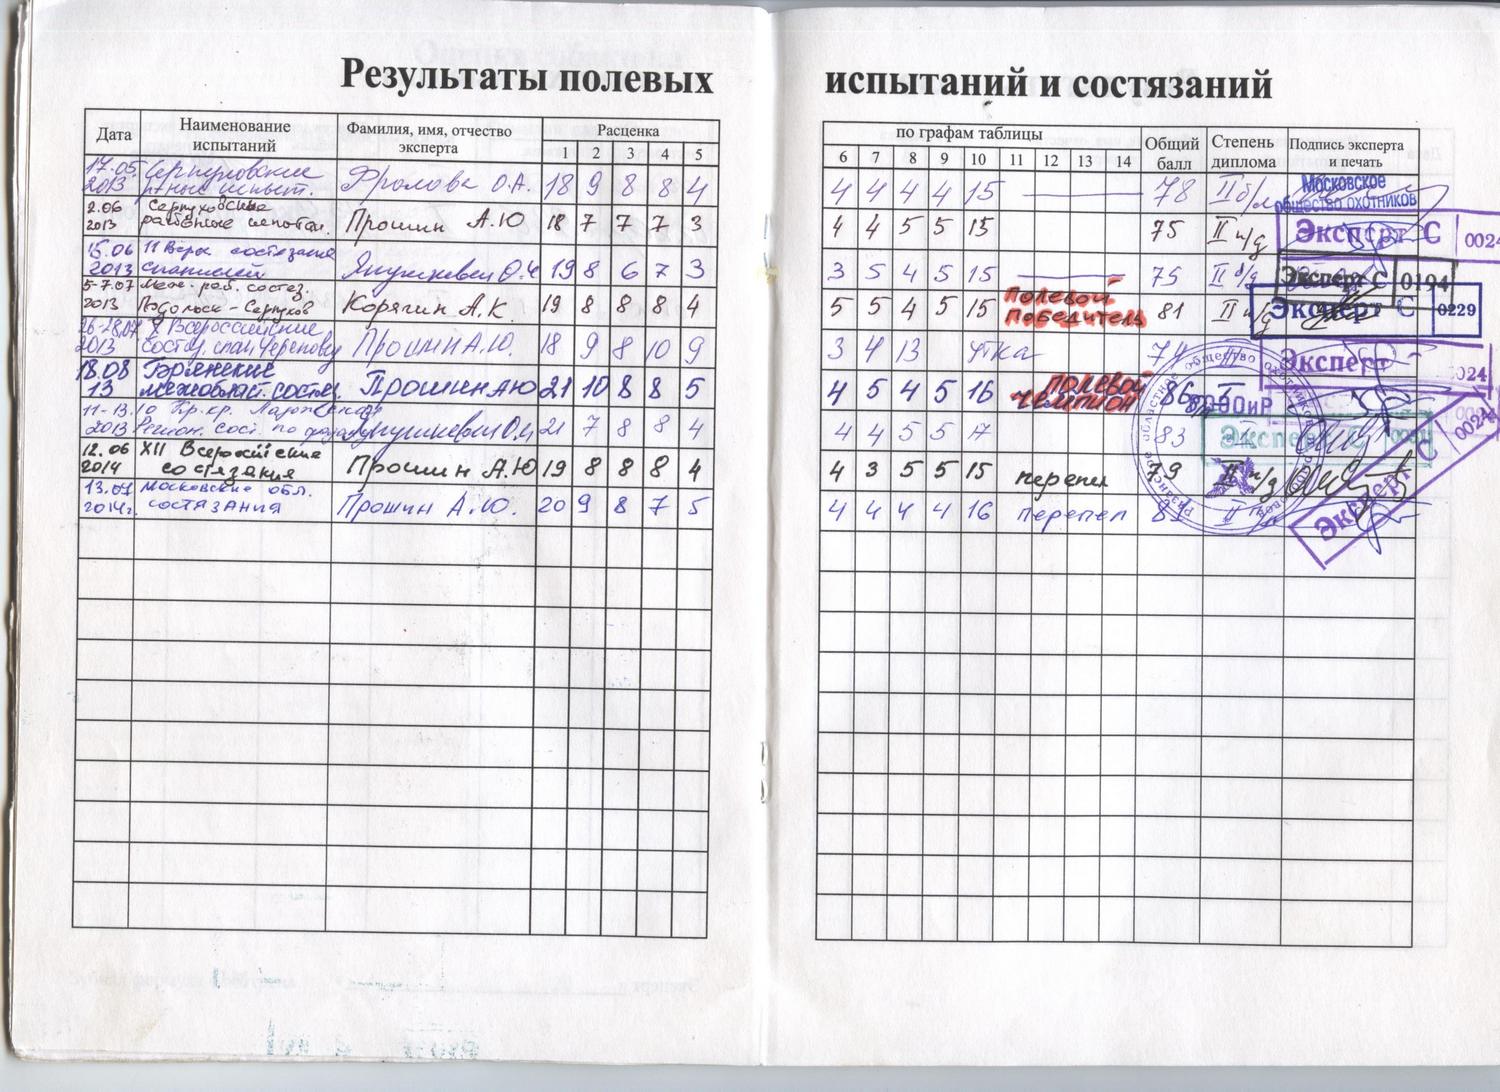 Результаты полевых испытаний и состязаний
Дата Наименование испытаний Фамилия, имя, отчество эксперта Расценка по графам таблицы Общий балл Степень диплома Подпись эксперта и печать
1 2 3 4 5 6 7 8 9 10 11 12 13 14
17.05. 2013 Серпуховские испыт. Фролова О.А. 18 9 8 8 4 4 4 4 4 15 78 II б/
2.06 2013 Серпуховские районные Прошин А.Ю 18 7 7 7 3 4 4 5 5 15 75 II п/д
15.06 2013 11 состязания спаниелей Янушкевич О. 19 8 6 7 3 3 5 4 5 15 75 II
5-7.07 2013 состяз. Подольск-Серпухов Корягин А.К. 19 8 8 8 4 5 5 4 5 15 Полевой победитель 81 II
26-28.07 2013 Всероссийские состяз. спан. Череповец Прошин А.Ю. 18 9 8 10 9 3 4 13 утка 74
18.08 13 Брянские межобласт. состяз. Прошин А Ю 21 10 8 8 5 4 5 4 5 16 Полевой чемпион 86 I
11-13.10 2013 Регион. сос. по фазану Янушкевич О. 21 7 8 8 4 4 4 5 5 17 83
12.06 2014 XII Всеросийские состязания Прошин А.Ю 19 8 8 8 4 4 3 5 5 15 перепел 79 II п/д
13.07 2014г. Московские обл. состязания Прошин А.Ю. 20 9 8 7 5 4 4 4 4 16 перепел II
Московское общество охотников
Эксперт С 0024
Эксперт С 0194
Эксперт С 0229
Эксперт
Эксперт С
Эксперт С 0024